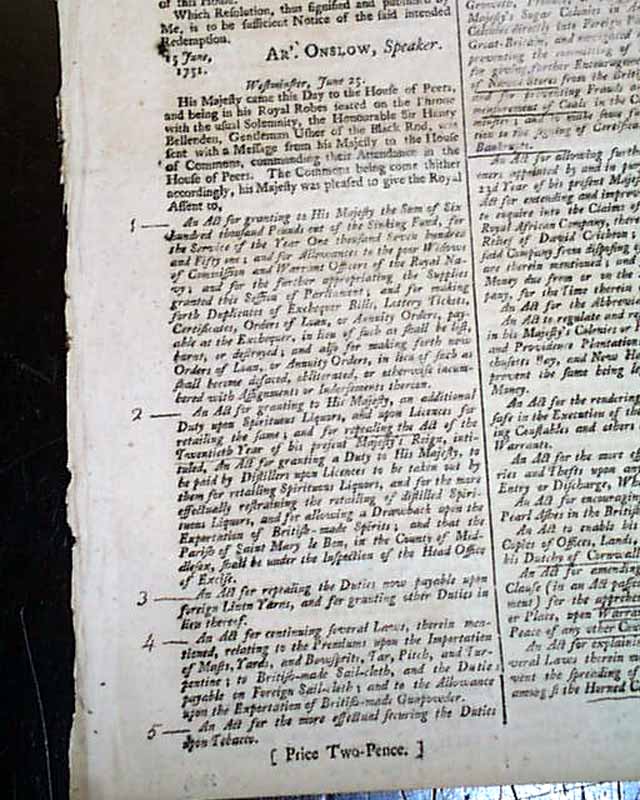 of this House.
Which Resolution, thus signified and published by
Me, is to be sufficient Notice of the said intended
Redemption.
15 June,
1751.
Arʳ. Onslow, Speaker.
Westminster, June 25.
His Majesty came this Day to the House of Peers,
and being in his Royal Robes seated on the Throne
with the usual Solemnity, the Honourable Sir Henry
Bellenden, Gentleman Usher of the Black Rod, was
sent with a Message from his Majesty to the House
of Commons, commanding their Attendance in the
House of Peers. The Commons being come thither
accordingly, his Majesty was pleased to give the Royal
Assent to,
1 — An Act for granting to His Majesty the Sum of Six
hundred thousand Pounds out of the Sinking Fund, for
the Service of the Year One thousand Seven hundred
and Fifty one; and for Allowances to the poor Widows
of Commission and Warrant Officers of the Royal Na-
vy; and for the further appropriating the Supplies
granted this Session of Parliament; and for making
forth Duplicates of Exchequer Bills, Lottery Tickets,
Certificates, Orders of Loan, or Annuity Orders, pay-
able at the Exchequer, in lieu of such as shall be lost,
burnt, or destroyed; and also for making forth new
Orders of Loan, or Annuity Orders, in lieu of such as
shall become defaced, obliterated, or otherwise incum-
bered with Assignments or Indorsements thereon.
2 — An Act for granting to His Majesty, an additional
Duty upon Spirituous Liquors, and upon Licences for
retailing the same; and for repealing the Act of the
Twentieth Year of his present Majesty's Reign, inti-
tuled, An Act for granting a Duty to His Majesty, to
be paid by Distillers upon Licences to be taken out by
them for retailing Spirituous Liquors, and for the more
effectually restraining the retailing of distilled Spiri-
tuous Liquors, and for allowing a Drawback upon the
Exportation of British-made Spirits; and that the
Parish of Saint Mary le Bon, in the County of Mid-
dlesex, shall be under the Inspection of the Head Office
of Excise.
3 — An Act for repealing the Duties now payable upon
foreign Linen Yarns, and for granting other Duties in
lieu thereof.
4 — An Act for continuing several Laws, therein men-
tioned, relating to the Premiums upon the Importation
of Masts, Yards, and Bowsprits, Tar, Pitch, and Tur-
pentine; to British-made Sail-cloth, and the Duties
payable on Foreign Sail-cloth; and to the Allowance
upon the Exportation of British-made Gunpowder.
5 — An Act for the more effectual securing the Duties
upon Tobacco.
[ Price Two-Pence. ]
Majesty's Sugar Colonies in A
Colonies directly into Foreign P
Great-Britain, and navigated
preventing the committing of
for giving further Encouragement
of Naval Stores from the British
and for preventing Frauds
measurement of Coals in the C
minster; and to make
tion to the signing of Certificat
Bankrupts.
An Act for allowing further
appointed by and in pur
23d Year of his present Majesty
Act for extending and improv
to enquire into the Claims of
Royal African Company, there
Relief of David Crichton;
said Company from disposing
are therein mentioned; and
Money due from or on the
pany, for the Time therein
An Act for the Abbrevia
An Act to regulate and re
in his Majesty's Colonies or P
and Providence Plantation
chusetts Bay, and New Ha
prevent the same being le
Money.
An Act for the rendering
safe in the Execution of th
ing Constables and others
Warrants.
An Act for the more ef
ries and Thefts upon any
Entry or Discharge, Wh
An Act for encouraging
Pearl Ashes in the British
An Act to enable his
Copies of Offices, Lands,
his Dutchy of Cornwall
An Act for amending
Clause (in an Act passed
ment) for the apprehen
or Place, upon Warran
Peace of any other Cou
An Act for explaining
veral Laws therein m
vent the spreading of
among st the Horned C